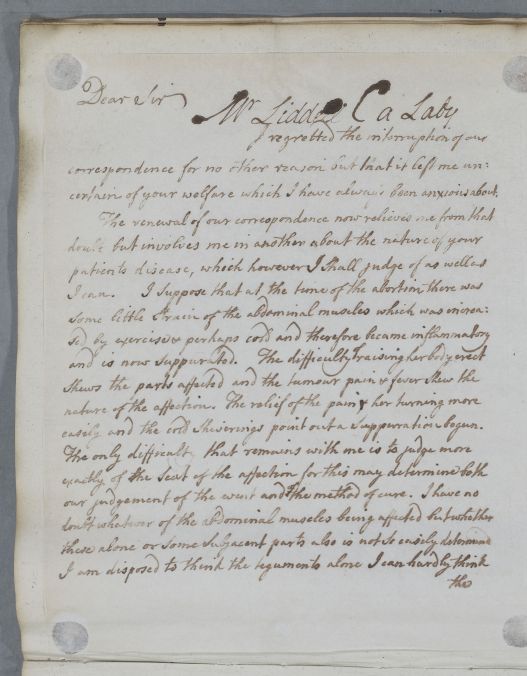 Dear Sir
Mr Liddell C a Lady
I regretted the interruption of our
correspondence for no other reason but that it left me un=
certain of your welfare which I have always been anxious about.
The renewal of our correspondence now relieves me from that
doubt but involves me in another about the nature of your
patients disease, which however I shall judge of as well as
I can. I suppose that at the time of the abortion there was
some little strain of the abdominal muscles which was increa=
sed by exercise & perhaps cold and therefore became inflammatory
and is now suppurated. The difficulty raising her body erect
shews the parts affected and the tumour pain & fever shew the
nature of the affection. The relief of the pain & her turning more
easily and the cold shiverings point out a suppuration begun.
The only difficulty that remains with me is to judge more
exactly of the seat of the affection for this may determine both
our judgement of the event and the method of cure. I have no
doubt whatever of the abdominal muscles being affected but whether
these alone or some subjacent parts also is not so easily determined
I am disposed to think the teguments alone I can hardly think
the